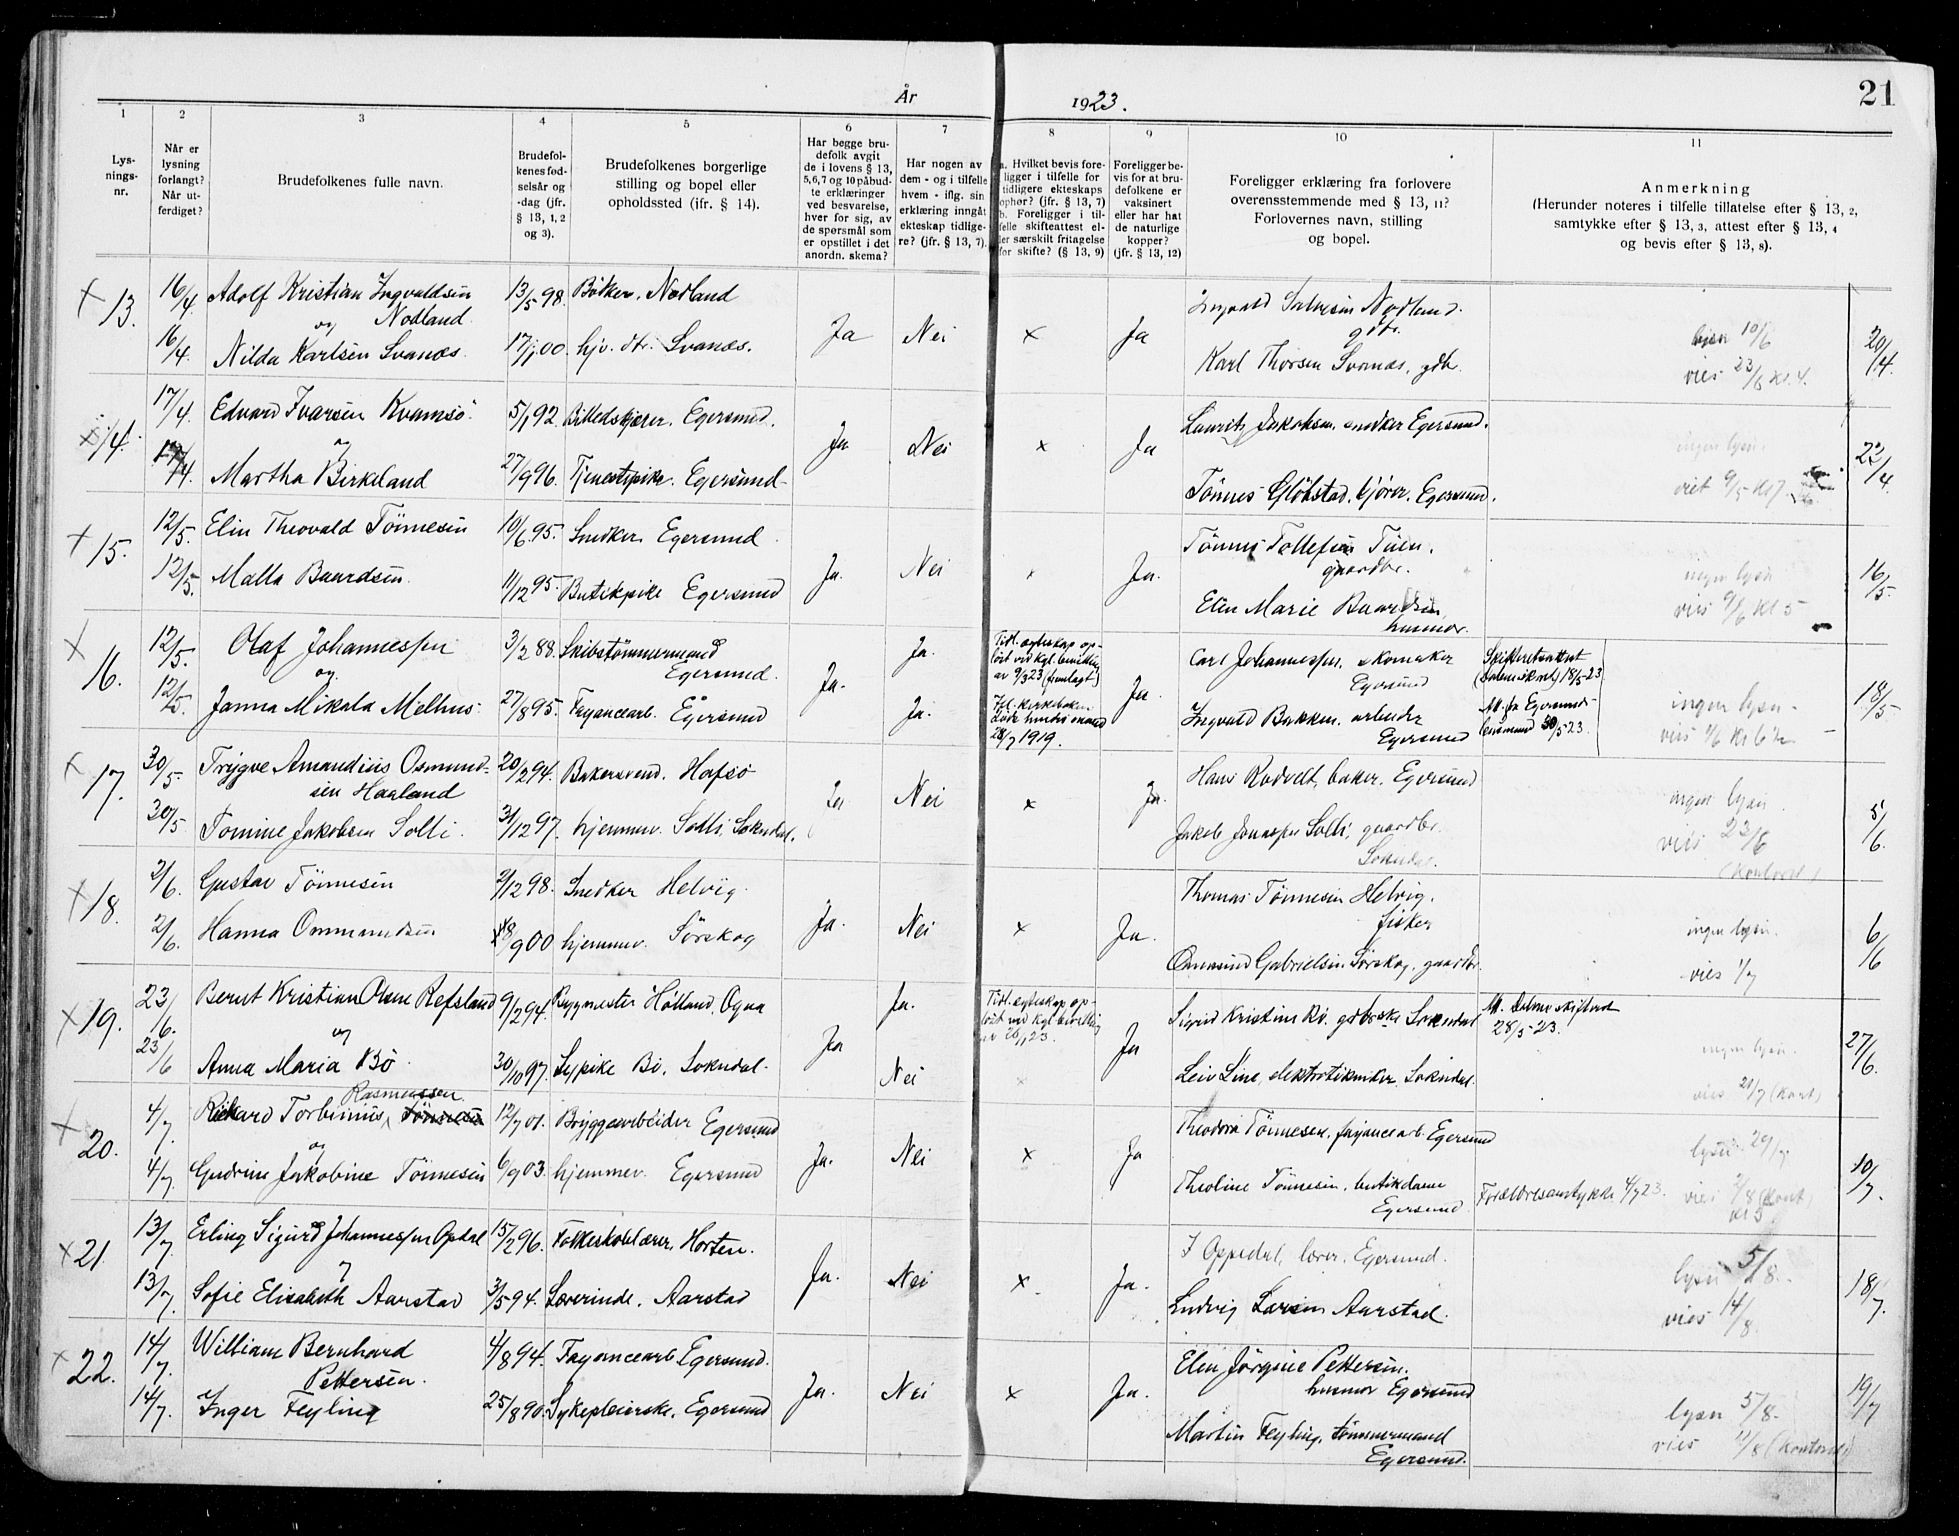 År 1923.
21
1 2 3 4 5 6 7 8 9 10 11
Lys-
nings-
nr.
Når er
lysning
forlangt?
Når ut-
ferdiget?
Brudefolkenes fulle navn.
Brudefol-
kenes fød-
selsår og
-dag (jfr.
§ 13, 1, 2
og 3).
Brudefolkenes borgerlige
stilling og bopel eller
opholdssted (ifr. § 14).
Har begge bru-
defolk avgit
de i lovens § 13,
5,6,7 og 10 påbud-
te erklæringer
ved besvarelse,
hver for sig, av
de spørsmål som
er opstillet i det
anordn. skema?
Har nogen av
dem - og i tilfelle
hvem - iflg. sin
erklæring inngåt
ekteskap tidlige-
re? (jfr. § 13, 7).
a. Hvilket bevis fore-
ligger i tilfelle for
tidligere ekteskaps
ophør? (jfr. § 13, 7)
b. Foreligger i til-
felle skifteattest el-
ler særskilt fritagelse
for skifte? (§ 13, 9)
Foreligger be-
vis for at bru-
defolkene er
vaksinert
eller har hat
de naturlige
kopper?
(jfr. § 13, 12)
Foreligger erklæring fra forlovere
overensstemmende med § 13, 11?
Forlovernes navn, stilling
og bopel.
Anmerkning
(Herunder noteres i tilfelle tillatelse efter § 13, 2,
samtykke efter § 13, 3, attest efter § 13, 4
og bevis efter § 13, 8).
x 13. 16/4. Adolf Kristian Ingvaldsen 13/5 98. Bøtker, Nodland Ingvald Salvesen Nodland.
og Nodland gdbr.
Ja Nei x Ja lysn 10/6 20/4.
16/4. Nilda Karlsen Svanæs. 17/1 00. hjv. dtr. Svanæs. Karl Thorsen Svanæs, gdbr. vies 23/6 kl. 4.
x 14. 17/4. Edvard Ivarsen Kvamsö 5/1 92. Billedskjærer, Egersund. Lauritz Jakobsen, snedker Egersund.
og Ja Nei x Ja ingen lysn. 22/4.
17/4. Martha Birkeland 27/9 96. Tjenestepike. Egersund Tönnes Glöbstad, kjörer, Egersund. viet 9/5 kl 7
x 15. 12/5. Elin Theovald Tönnesen 10/6 95. Snedker Egersund Tönnes Tollefsen Tuen,
gaardbr.
Ja. Nei x Ja. ingen lysn 16/5
12/5. Malla Baardsen. 11/12 95. Butikpike Egersund Elen Marie Baardsen, vies 9/6 kl 5
husmor.
x 16. 12/5. Olaf Johannessen 3/2 88. Skibstømmermand Ja. Tidl. egteskap op- Carl Johannessen, skomaker Skifteretsattest
og Egersund. løst ved kgl. bevilling Egersund (Dalene skrvt) 18/5-23
Ja. av 9/3 23 (fremlagt) Ja. ingen lysn - 18/5
12/5. Janna Mikala Melhus. 27/8 95. Fayancearb. Egersund Ja. Ifl. kirkeboken Ingvald Bakken, arbeider Att. fra Egersunds
døde hendes mand Egersund lensmand 30/5 23.
28/7 1919. vies 9/6 kl 6 1/2
x 17. 30/5. Trygve Amandius Osmund- 20/2 94. Bakersvend. Hafsö Hans Rodvelt, baker, Egersund
sen Haaland
Ja Nei x Ja. ingen lysn. 5/6.
30/5. Tomine Jakobsen Solli. 31/12 97. hjemmev. Solli, Sokndal. Jakob Jonassen Solli, gaardbr. vies 23/6
Sokndal.
x 18. 2/6. Gustav Tönnesen 2/12 98. Snedker Helvig. Thomas Tönnesen Helvig.
fisker
Ja. Nei x Ja. ingen lysn. 6/6
2/6. Hanna Ommundsen 18/9 00 hjemmev. Sörskog Ommund Gabrielsen Sörskog, gaardbr. vies 1/7
x 19. 23/6. Bernt Kristian Olsen Refsland 9/2 94. Bygmester Hölland, Ogna Ja. Tidl. egteskap op- Sigrid Kristine Bö, gdbrske Sokndal Att. Dalene skifteret
og løst ved kgl. bevilling 28/5-23.
Ja av 26/1 23. Ja ingen lysn. 27/6.
23/6 Anna Maria Bö. 30/10 97. Sypike Bö, Sokndal. Nei x Leiv Line, elektrotekniker, Sokndal. vies 21/7 (Kont)
Rasmussen
x 20. 4/7. Rikard Torbinius, Tönnesen 12/7 01. Bryggearbeider Egersund Theodor Tönnesen, fayancearb. Egersund
og Ja. Nei x Ja lysn 29/7 10/7.
4/7. Gudrine Jakobine Tönnesen 6/9 03. hjemmev. Egersund Theoline Tönnesen, butikdame Forældresamtykke 4/7 23. vies /8 (Kont)
Egersund kl 5
x 21. 13/7. Erling Sigurd Johannessen Opdal 15/2 96. Folkeskolelærer, Horten. I Oppedal, lærer, Egersund.
og Ja. Nei x Ja. lysn 5/8. 18/7.
13/7. Sofie Elisabeth Aarstad 3/5 94. Lærerinde, Aarstad Ludvig Larsen Aarstad. vies 14/8.
x 22. 14/7. William Bernhard 4/8 94. Fayancearb Egersund. Elen Jörgine Pettersen.
Pettersen. husmor Egersund
Ja. Nei x Ja. lysn 5/8. 19/7
14/7. Inger Feyling 25/8 90. Sykepleierske, Egersund Martin Feyling, tömmermand vies 11/8 (Kontoret)
Egersund.